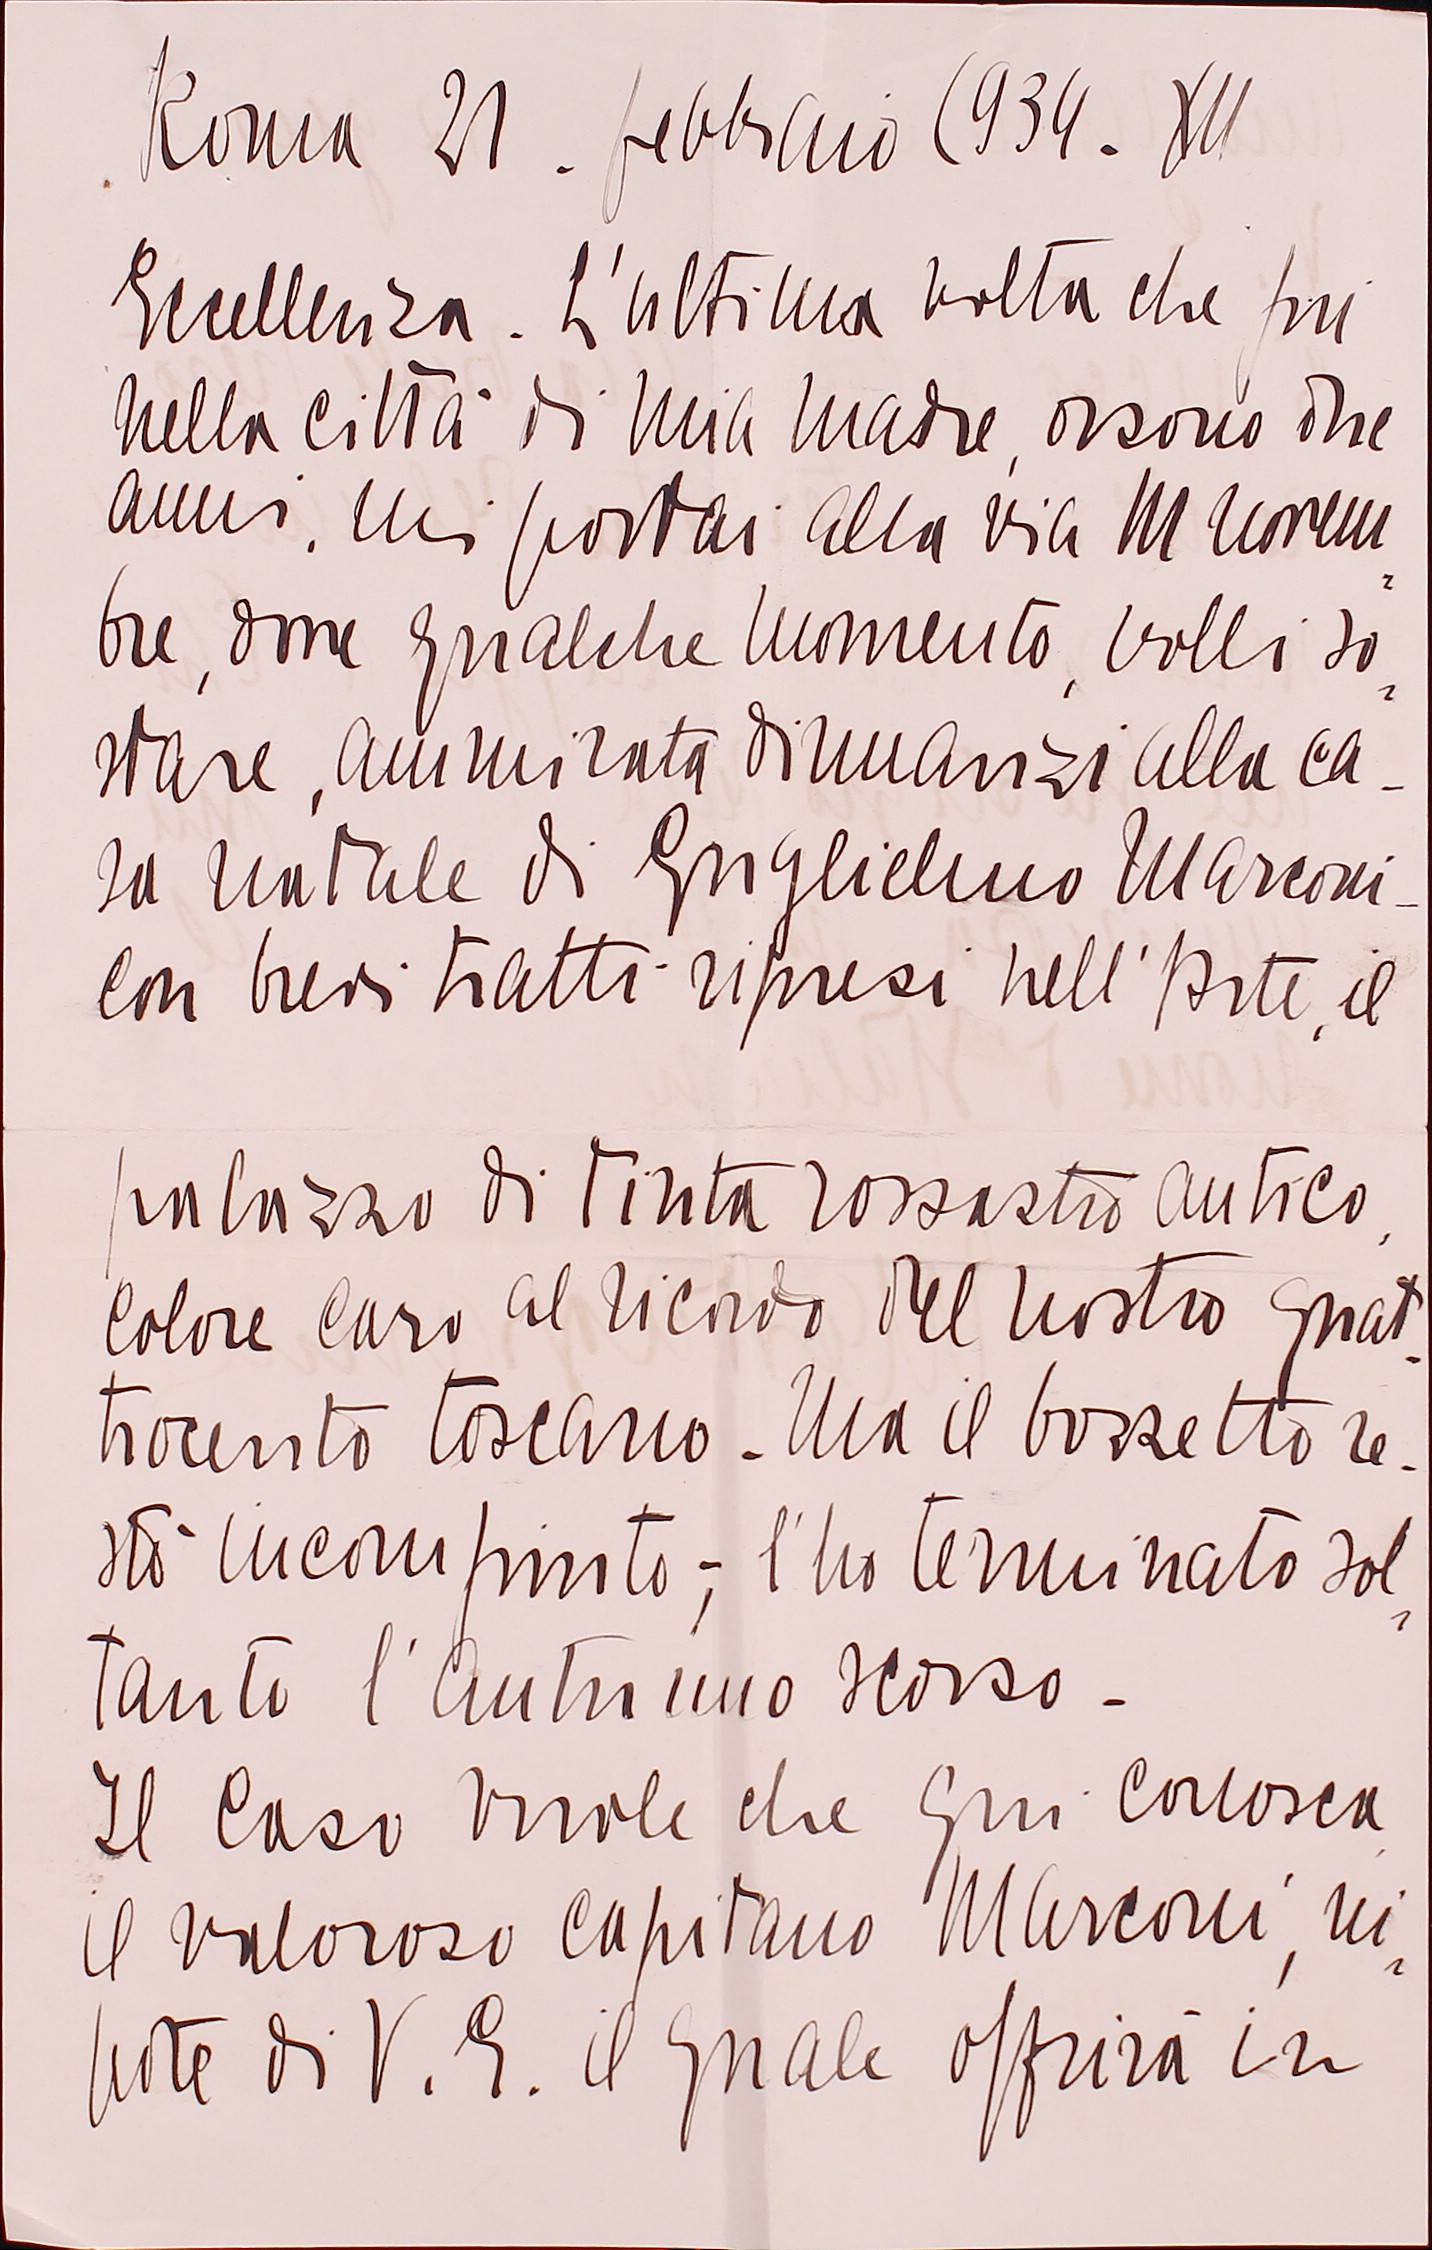 Roma 21 - febbraio 1934 - XII
Eccellenza - L'ultima volta che fui
nella città di mia madre, orsono due
anni, mi portai alla via IV novem-
bre, dove qualche momento, volli so-
stare, ammirata dinnanzi alla ca-
sa natale di Guglielmo Marconi -
con brevi tratti ripresi nell'Arte, il
palazzo di tinta rossastro antico,
colore caro al ricordo del nostro quat-
trocento toscano - Ma il bozzetto re-
stò incompiuto -; l'ho terminato sol-
tanto l'autunno scorso -
Il caso vuole che qui conosca
il valoroso capitano Marconi, ni-
pote di V. E. il quale offrirà in